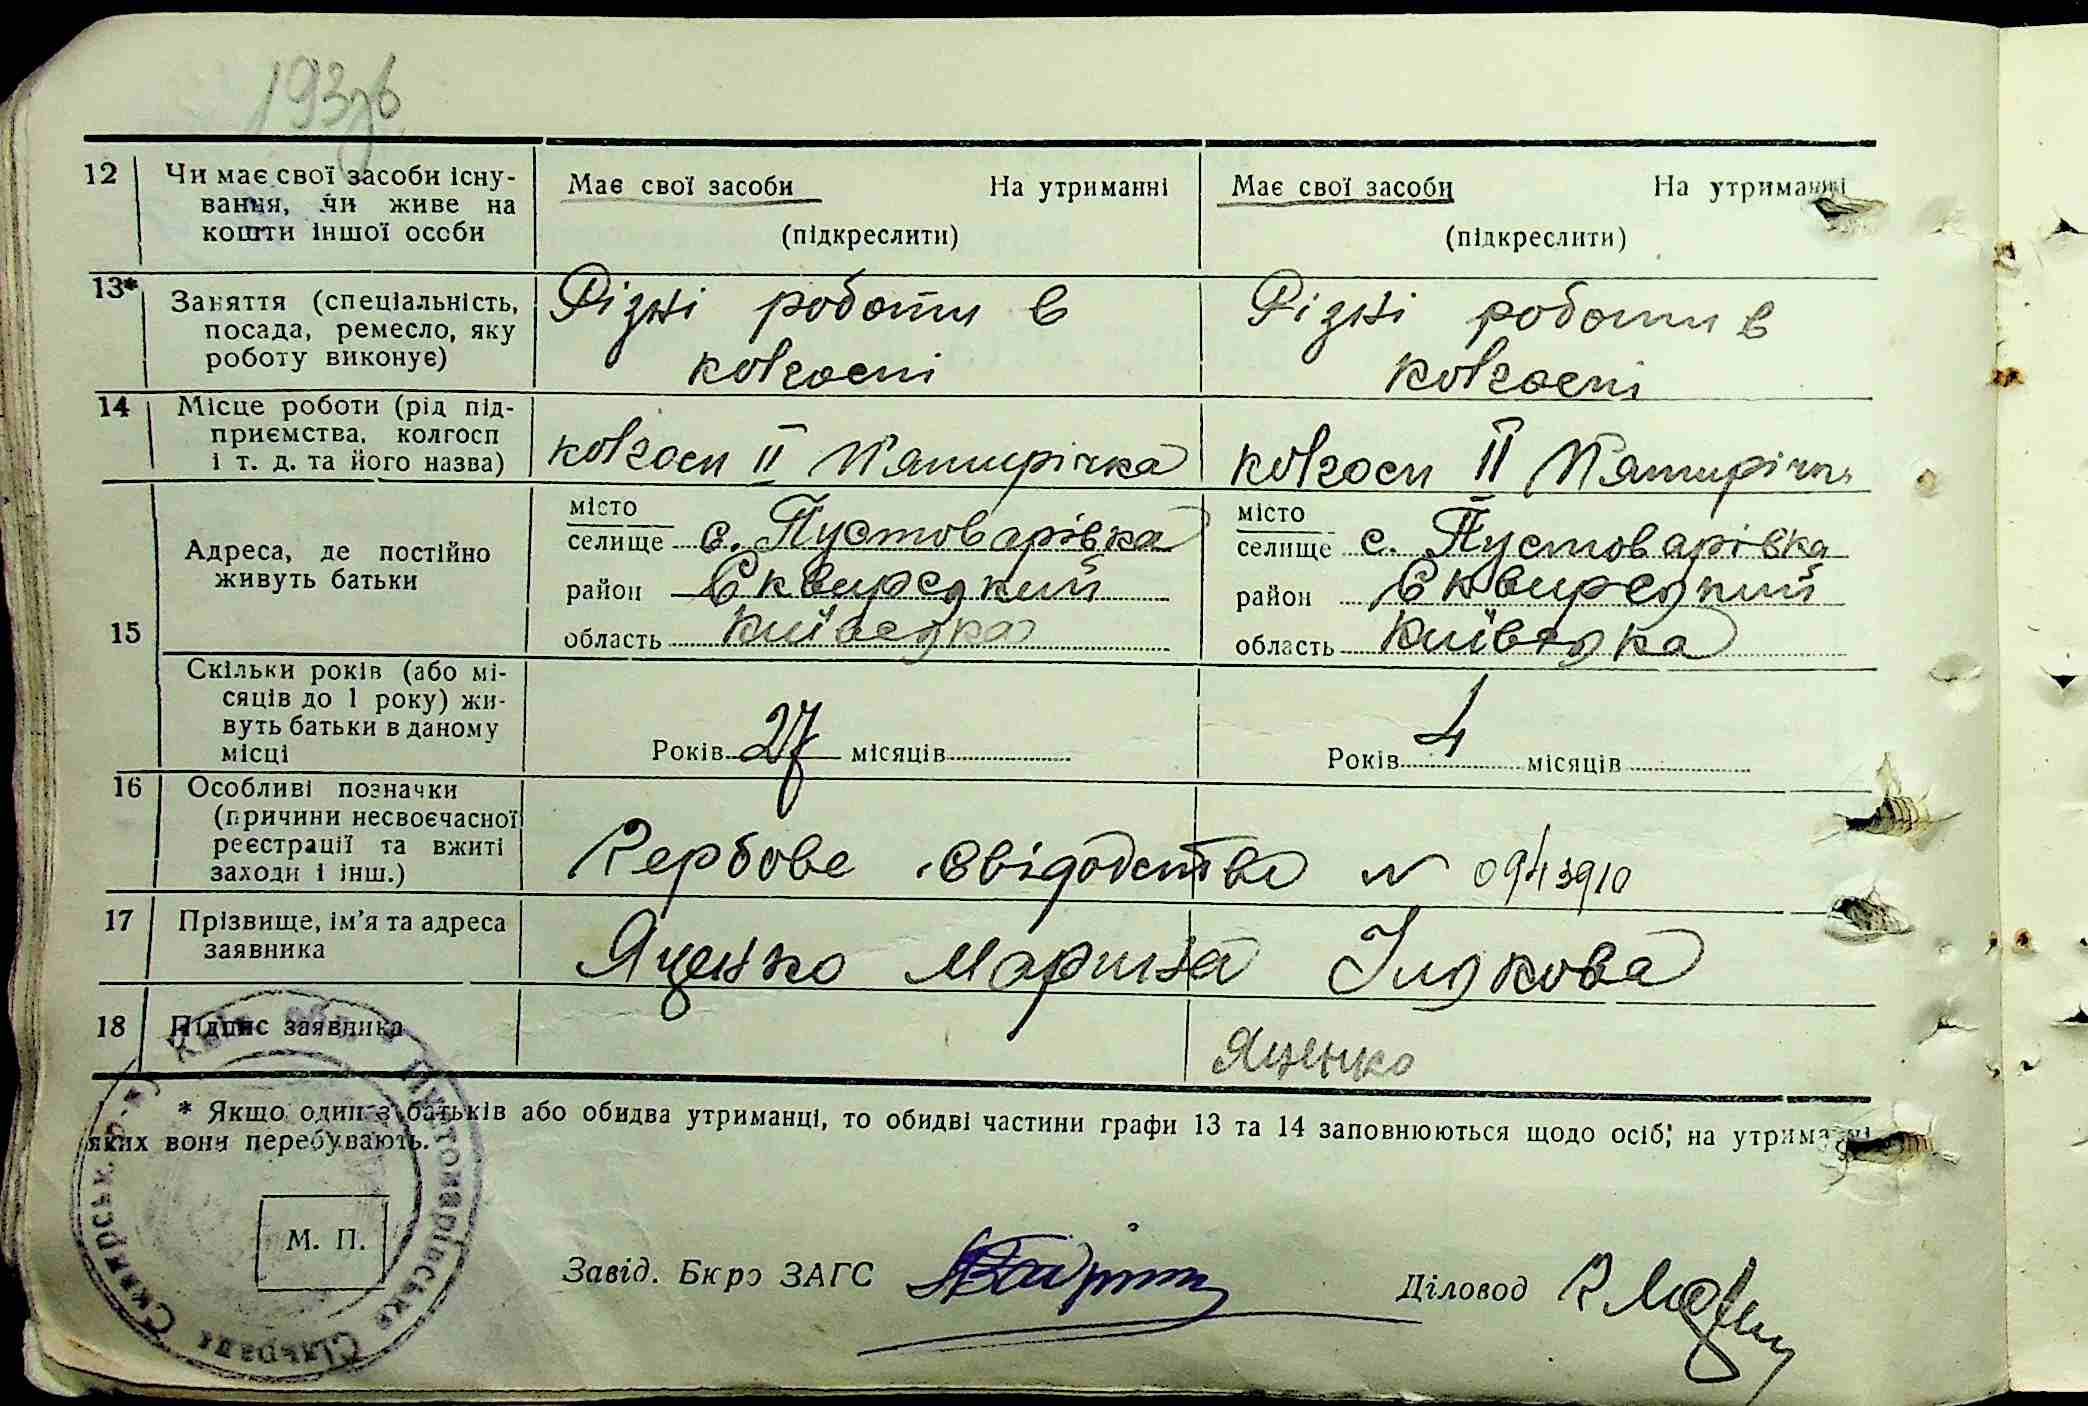 12 Чи має свої засоби існу-
вання, чи живе на
кошти іншої особи
Має свої засоби На утриманні
(підкреслити)
Має свої засоби На утриманні
(підкреслити)
13* Заняття (спеціальність,
посада, ремесло, яку
роботу виконує)
Різні роботи в
колгоспі
Різні роботи в
колгоспі
14 Місце роботи (рід під-
приємства, колгосп
і т. д. та його назва)
колгосп II П'ятирічка
колгосп II П'ятирічка
15 Адреса, де постійно
живуть батьки
місто
селище с. Пустоварівка
район Сквирський
область Київська
місто
селище с. Пустоварівка
район Сквирський
область Київська
Скільки років (або мі-
сяців до 1 року) жи-
вуть батьки в даному
місці
Років 27 місяців
Років 4 місяців
16 Особливі позначки
(причини несвоєчасної
реєстрації та вжиті
заходи і інш.)
Гербове свідоцтво N 0943910
17 Прізвище, ім'я та адреса
заявника
Яценко Марина Ількова
18 Підпис заявника
Яценко
* Якщо один з батьків або обидва утриманці, то обидві частини графи 13 та 14 заповнюються щодо осіб, на утриманні
яких вони перебувають.
М. П.
Завід. Бюро ЗАГС
Діловод